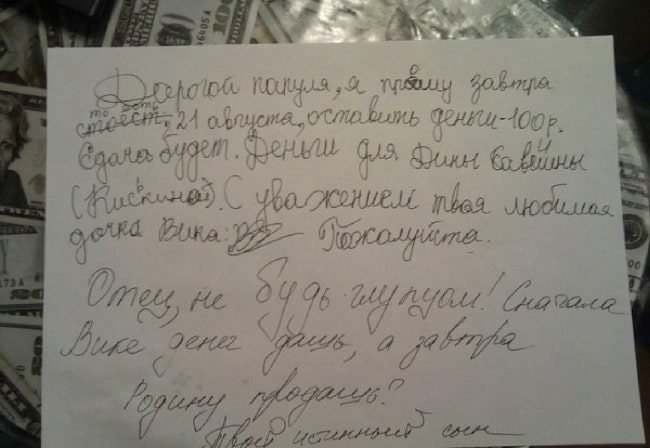 Дорогой папуля, я прошу завтра
то есть
стоест. 21 августа, оставить деньги-100р.
Сдача будет. Деньги для Дины
(Кискиной). С уважением твоя любимая
дочка Вика: Пожалуйста.
Отец, не будь глупцом! Сначала
Вике денег дашь, а завтра
Родину продашь?
Твой истинный сын